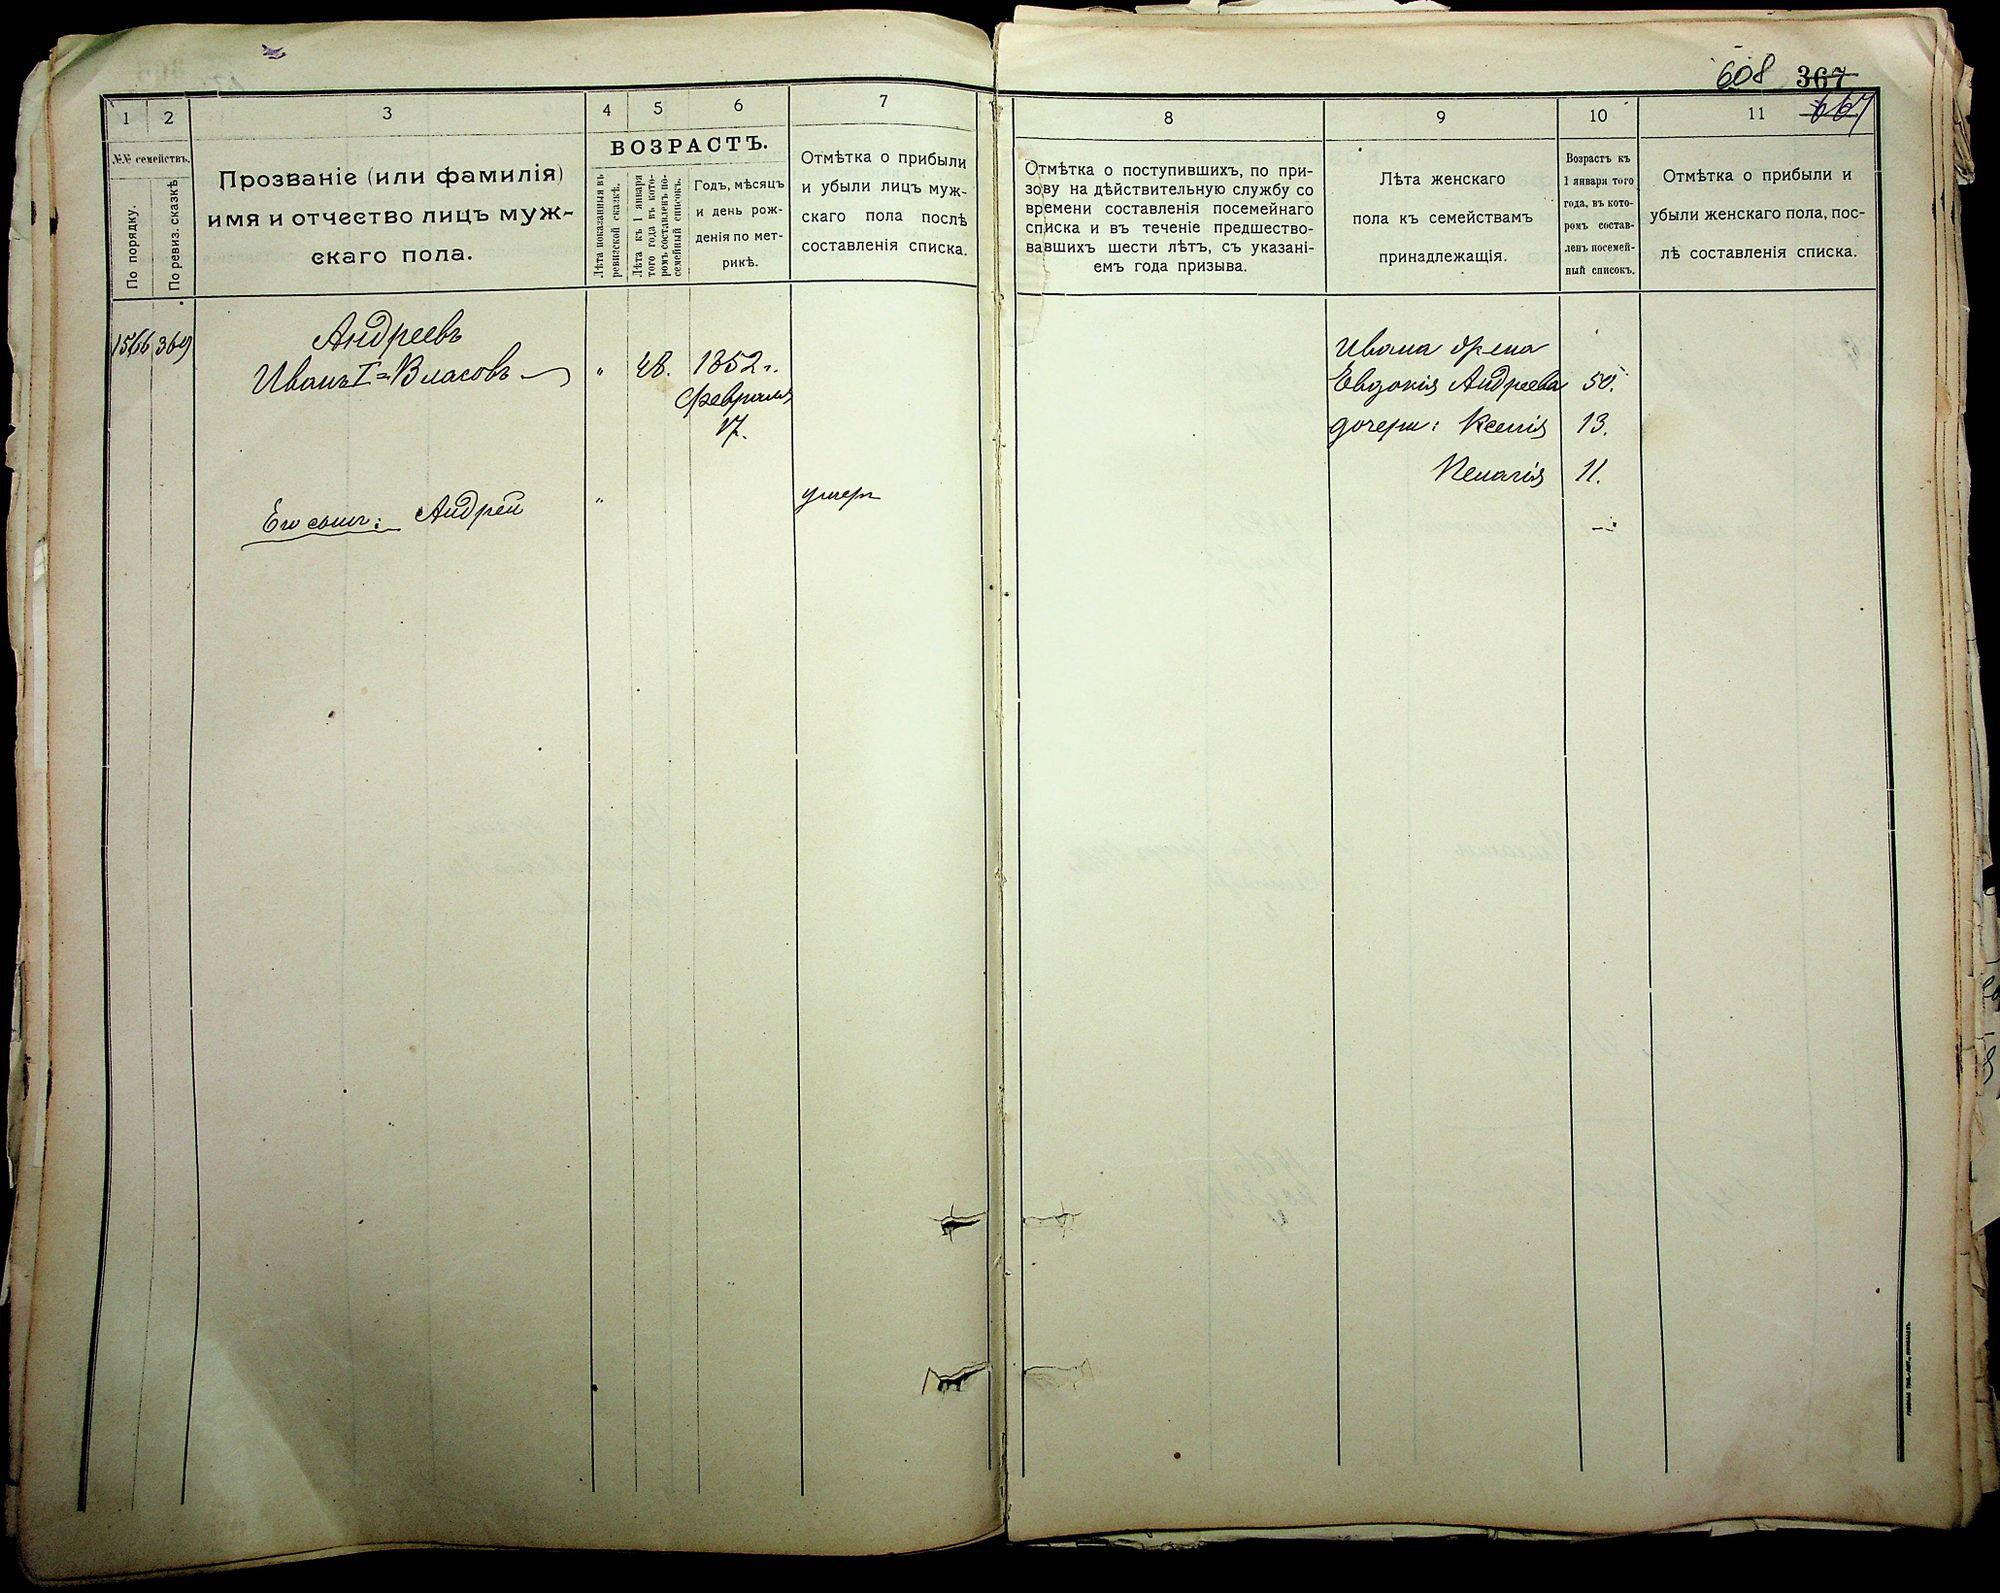 608 367
667
1
2
3
4
5
6
7
№№ семействъ.
По порядку.
По ревиз. сказкѣ
Прозваніе (или фамилія)
имя и отчество лицъ муж-
скаго пола.
ВОЗРАСТЪ.
Лѣта показанныя въ
ревизской сказкѣ.
Лѣта къ 1 января
того года въ кото-
ромъ составленъ по-
семейный списокъ.
Годъ, мѣсяцъ
и день рож-
денія по мет-
рикѣ.
Отмѣтка о прибыли
и убыли лицъ муж-
скаго пола послѣ
составленія списка.
1566 369
Андреевъ
Иванъ I = Власовъ
"
48.
1852 г.
февраля
17.
Его сынъ: Андрей
"
умеръ
8
9
10
11
Отмѣтка о поступившихъ, по при-
зову на дѣйствительную службу со
времени составленія посемейнаго
списка и въ теченіе предшество-
вавшихъ шести лѣтъ, съ указані-
емъ года призыва.
Лѣта женскаго
пола къ семействамъ
принадлежащія.
Возрастъ къ
1 января того
года, въ кото-
ромъ состав-
ленъ посемей-
ный списокъ.
Отмѣтка о прибыли и
убыли женскаго пола, пос-
лѣ составленія списка.
Ивана жена
Евдокія Андреева 50.
дочери: Ксенія 13.
Пелагія 11.
—